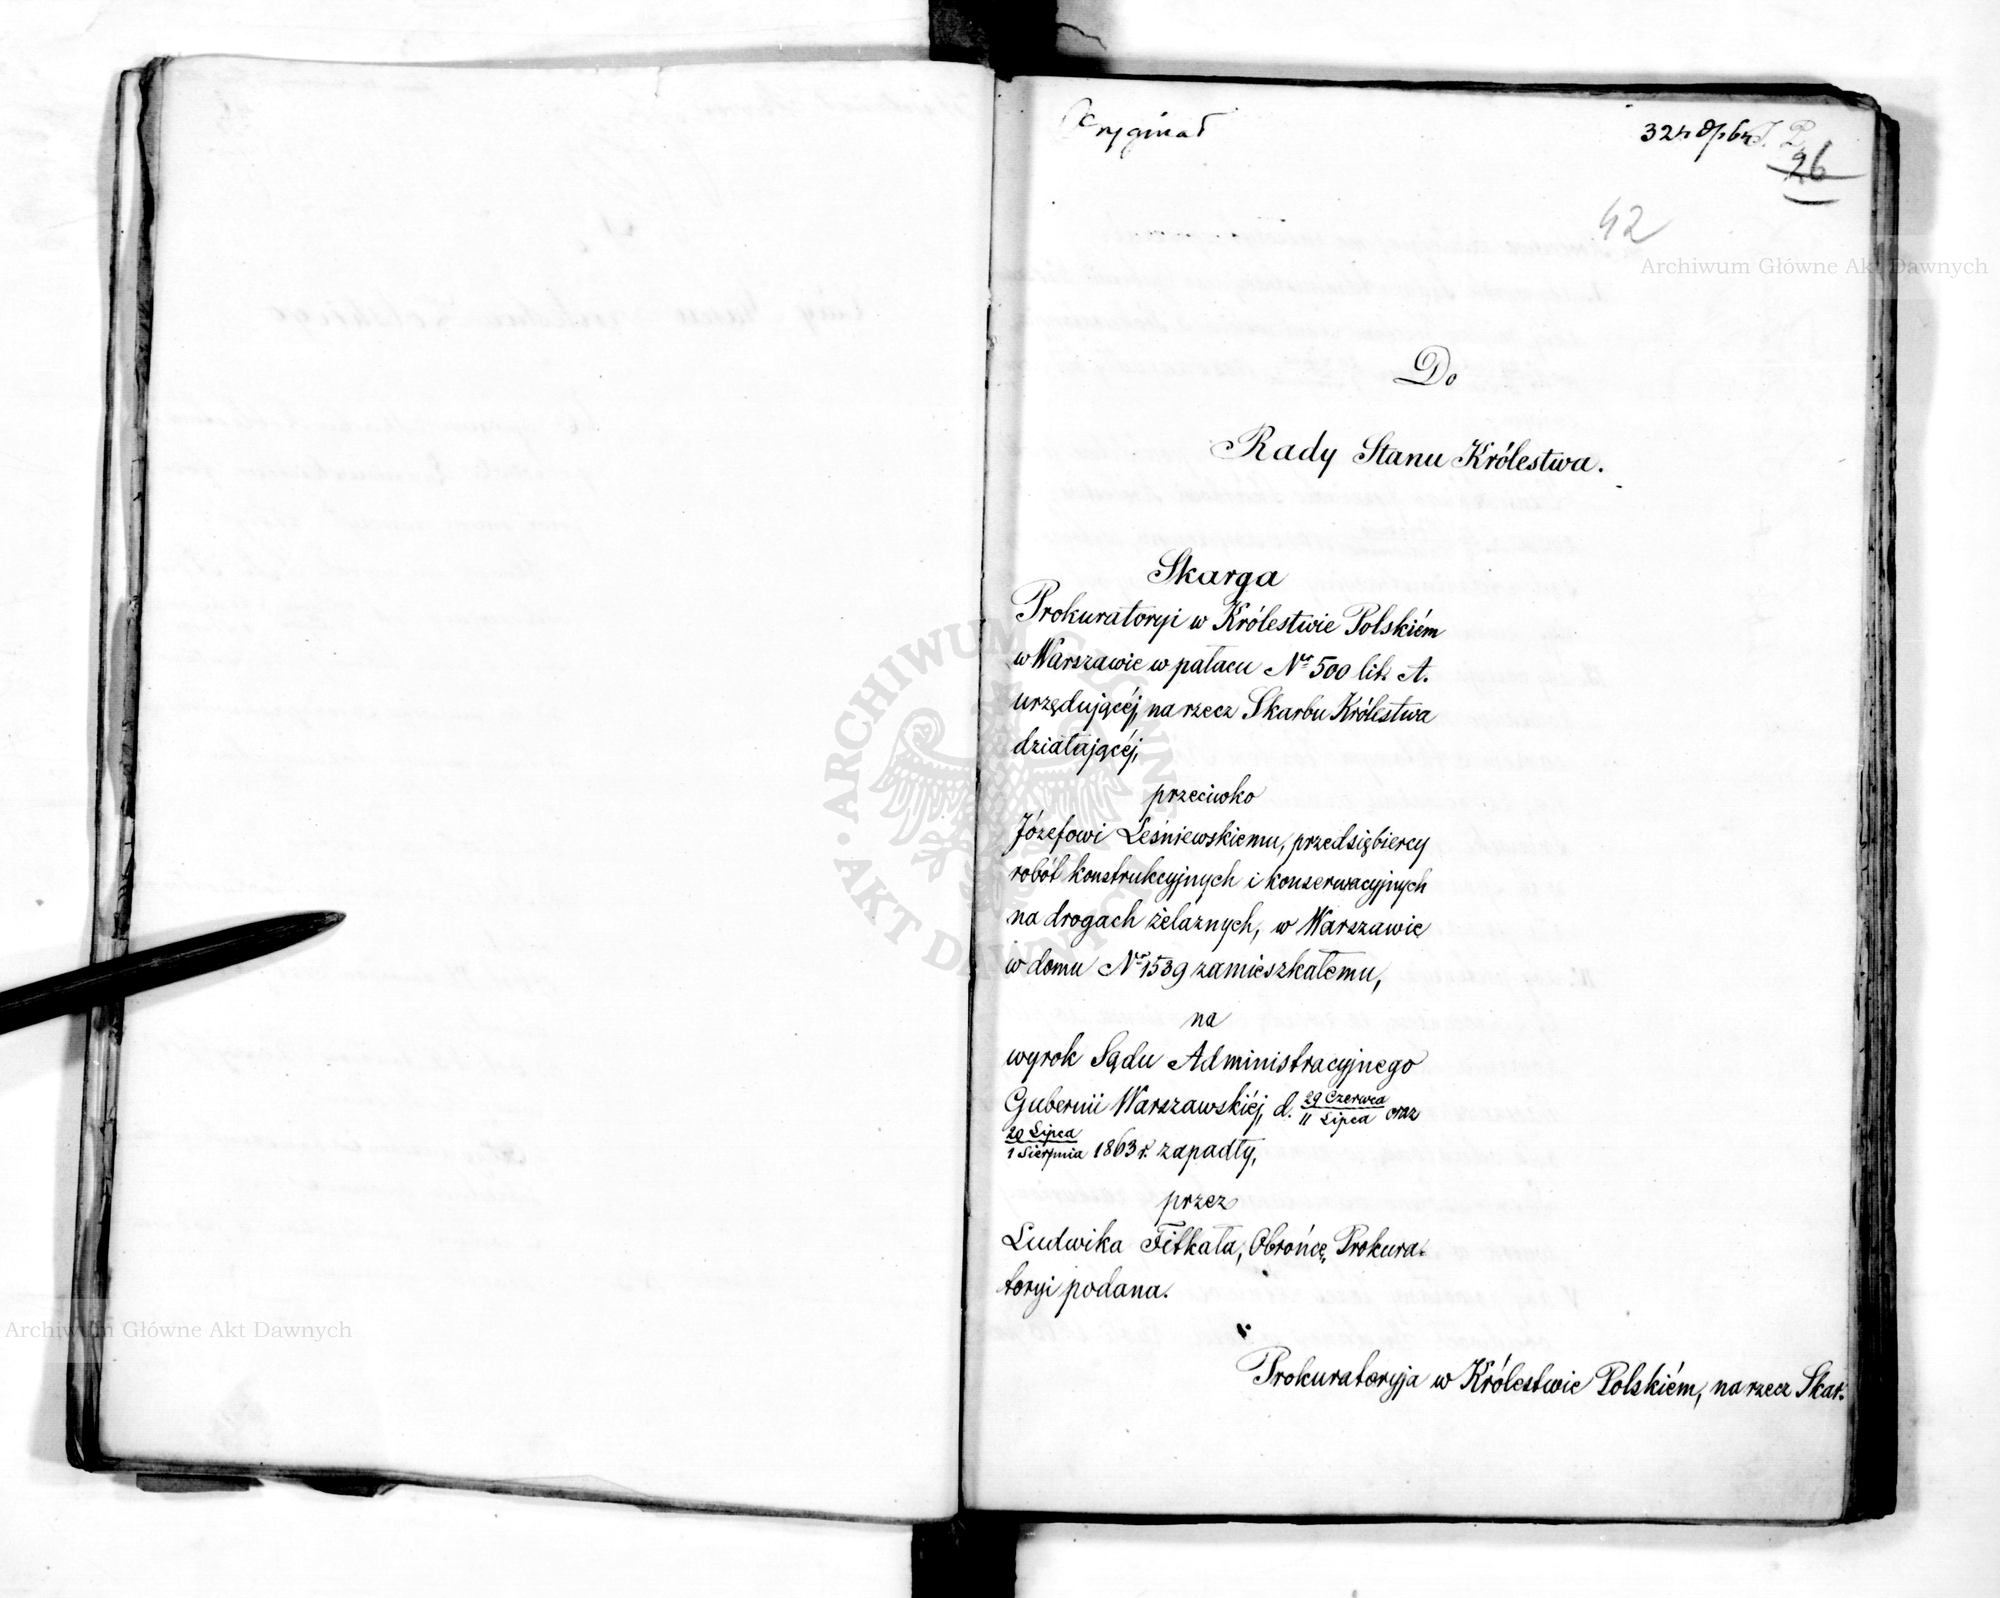 Oryginał
26
42
Do
Rady Stanu Królestwa.
Skarga
Prokuratoryi w Królestwie Polskiém
w Warszawie w pałacu Nr 500 lit. A.
urzędującéj, na rzecz Skarbu Królestwa
działającéj,
przeciwko
Józefowi Leśniewskiemu, przedsiębiercy
robót konstrukcyjnych i konserwacyjnych
na drogach żelaznych, w Warszawie
w domu Nr 1539 zamieszkałemu,
na
wyrok Sądu Administracyjnego
Gubernii Warszawskiéj, d. 29 Czerwca / 11 Lipca oraz
20 Lipca / 1 Sierpnia 1863 r. zapadły,
przez
Ludwika Fitkała, Obrońcę Prokura-
toryi podana.
Prokuratoryja w Królestwie Polskiém, na rzecz Skar-
Archiwum Główne Akt Dawnych
Archiwum Główne Akt Dawnych
ARCHIWUM GŁÓWNE AKT DAWNYCH